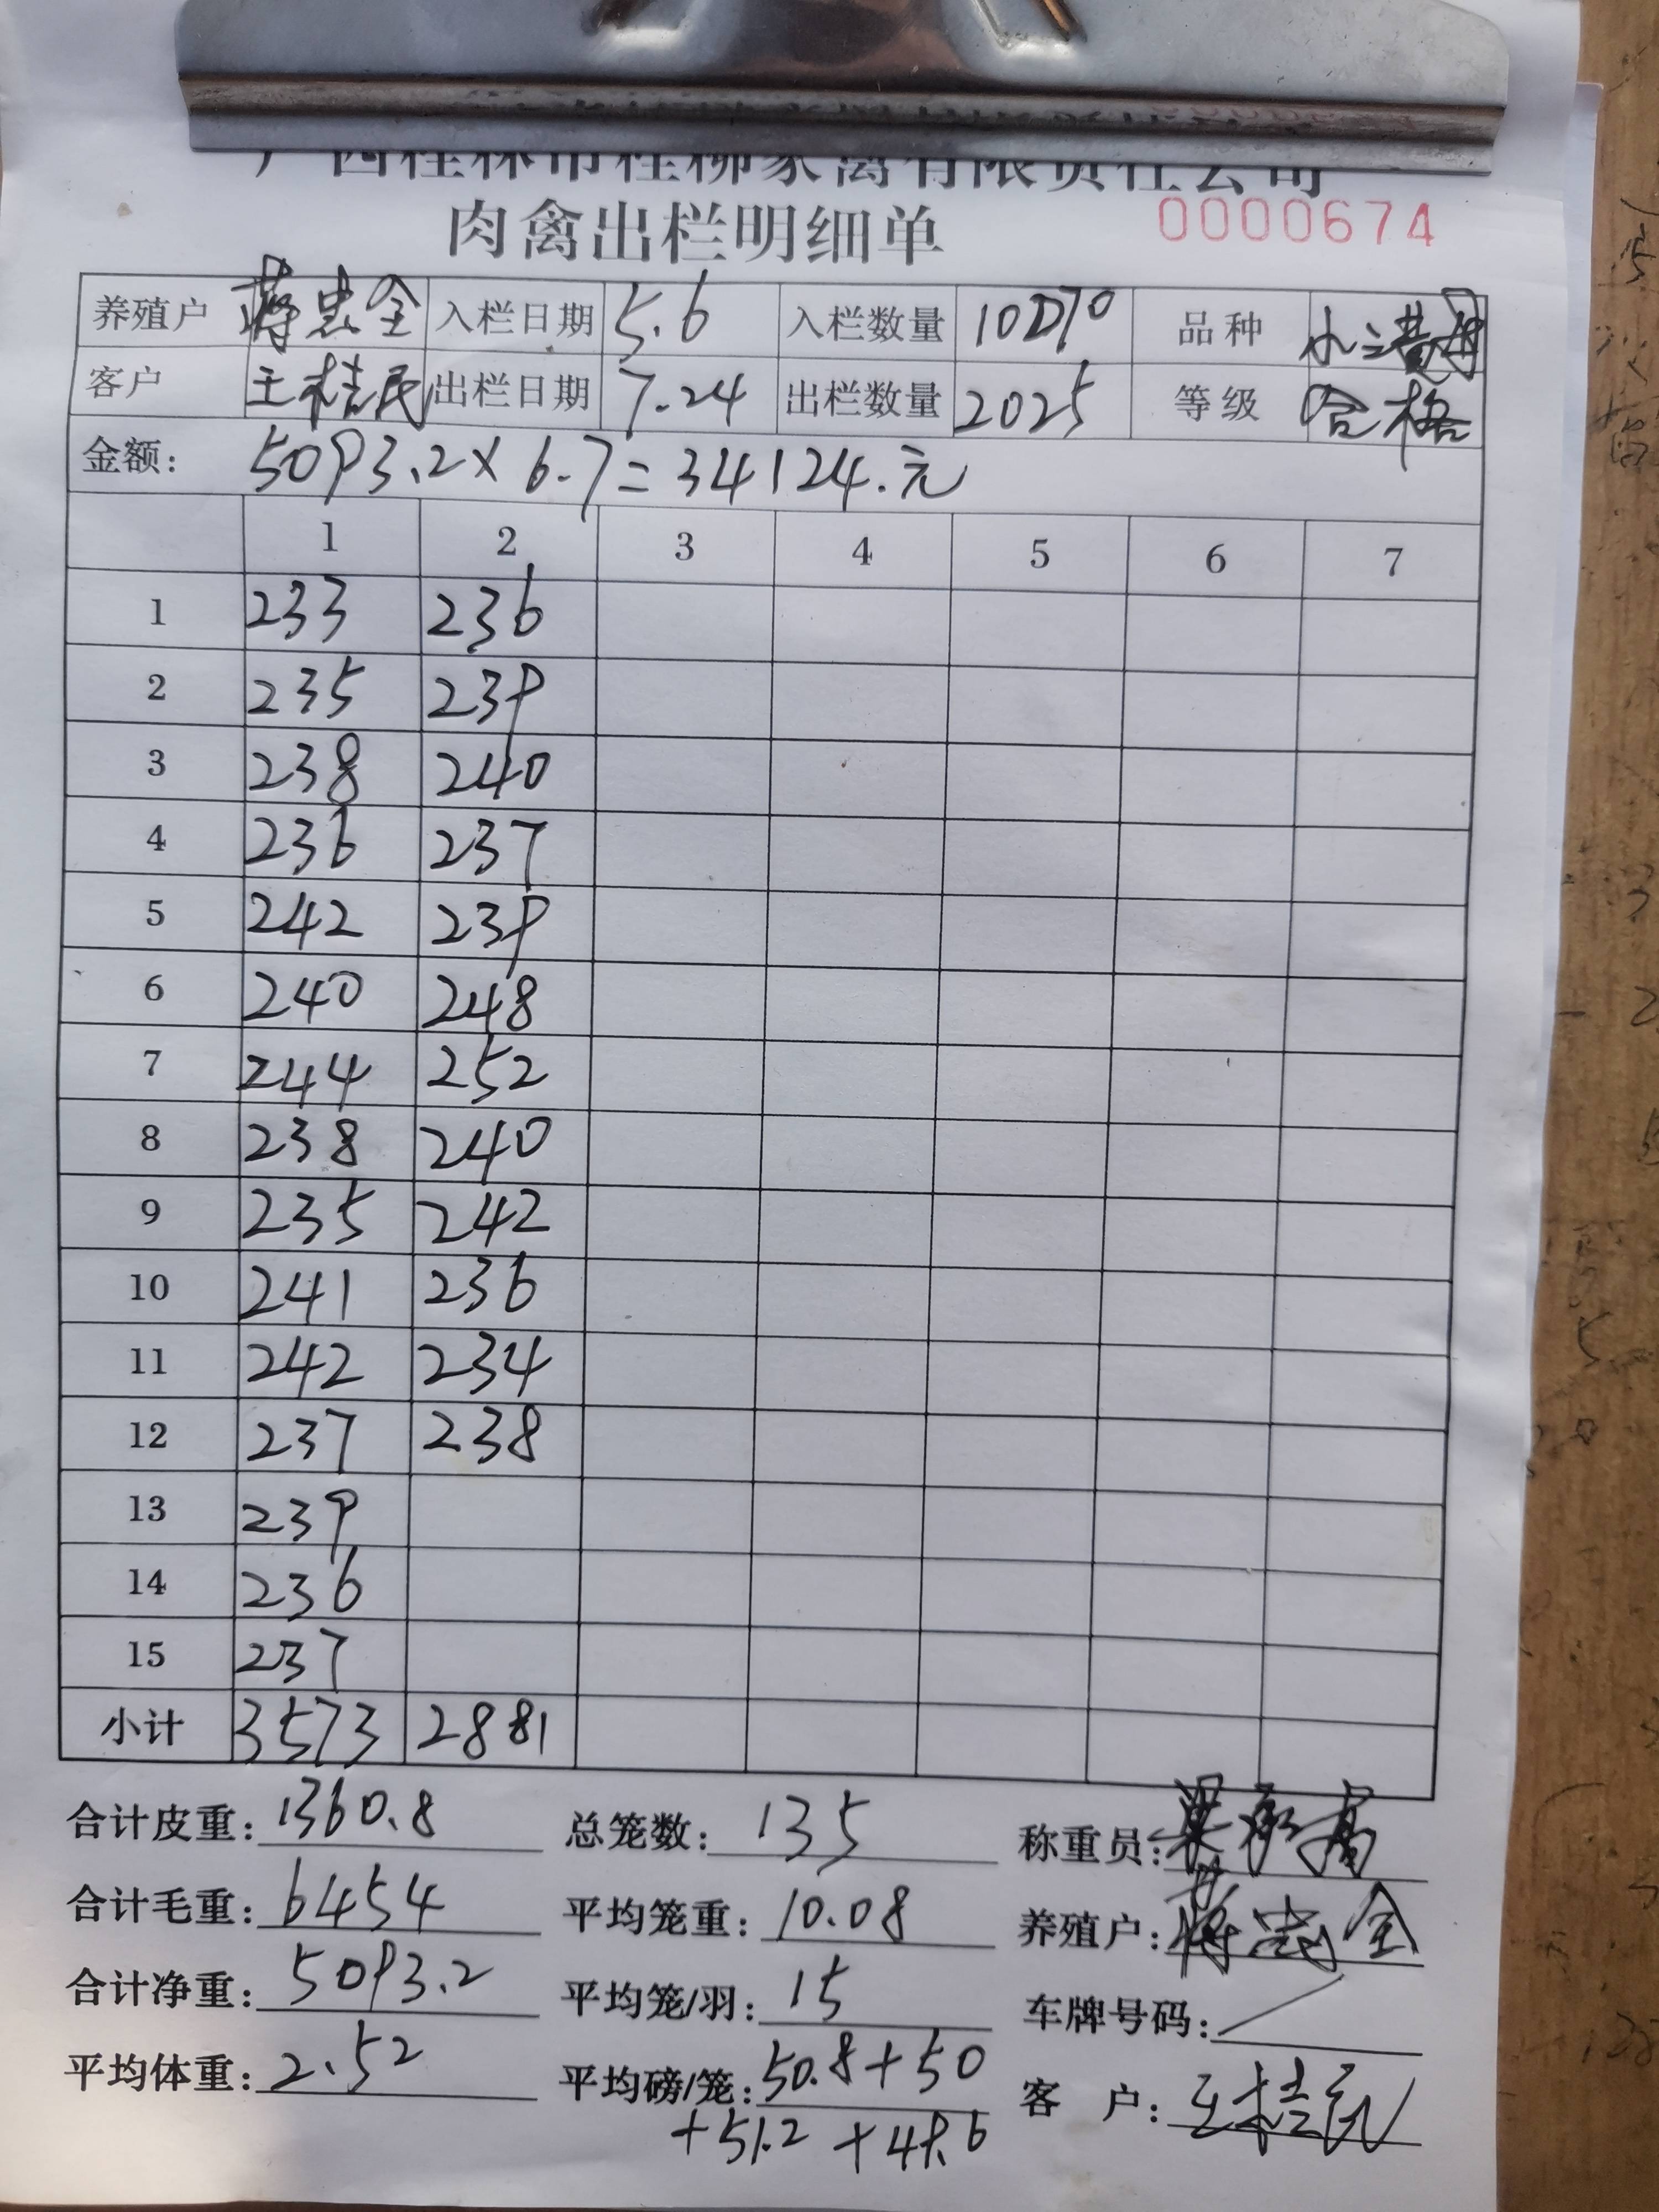 广西桂林市桂柳家禽有限责任公司
肉禽出栏明细单 0000674
养殖户 蒋忠全 入栏日期 5.6 入栏数量 品种
客户 王桂民 出栏日期 7.24 出栏数量 2025 等级 合格
金额: 5093.2×6.7=34124.元
1 2 3 4 5 6 7
1 233 236
2 235 239
3 238 240
4 236 237
5 242 239
6 240 248
7 244 252
8 238 240
9 235 242
10 241 236
11 242 234
12 237 238
13 239
14 236
15 237
小计 3573 2881
合计皮重: 1360.8 总笼数: 135 称重员:
合计毛重: 6454 平均笼重: 10.08 养殖户: 蒋忠全
合计净重: 5093.2 平均笼/羽: 15 车牌号码: /
平均体重: 2.52 平均磅/笼: 50.8+50 客 户: 王桂民
+51.2+49.6